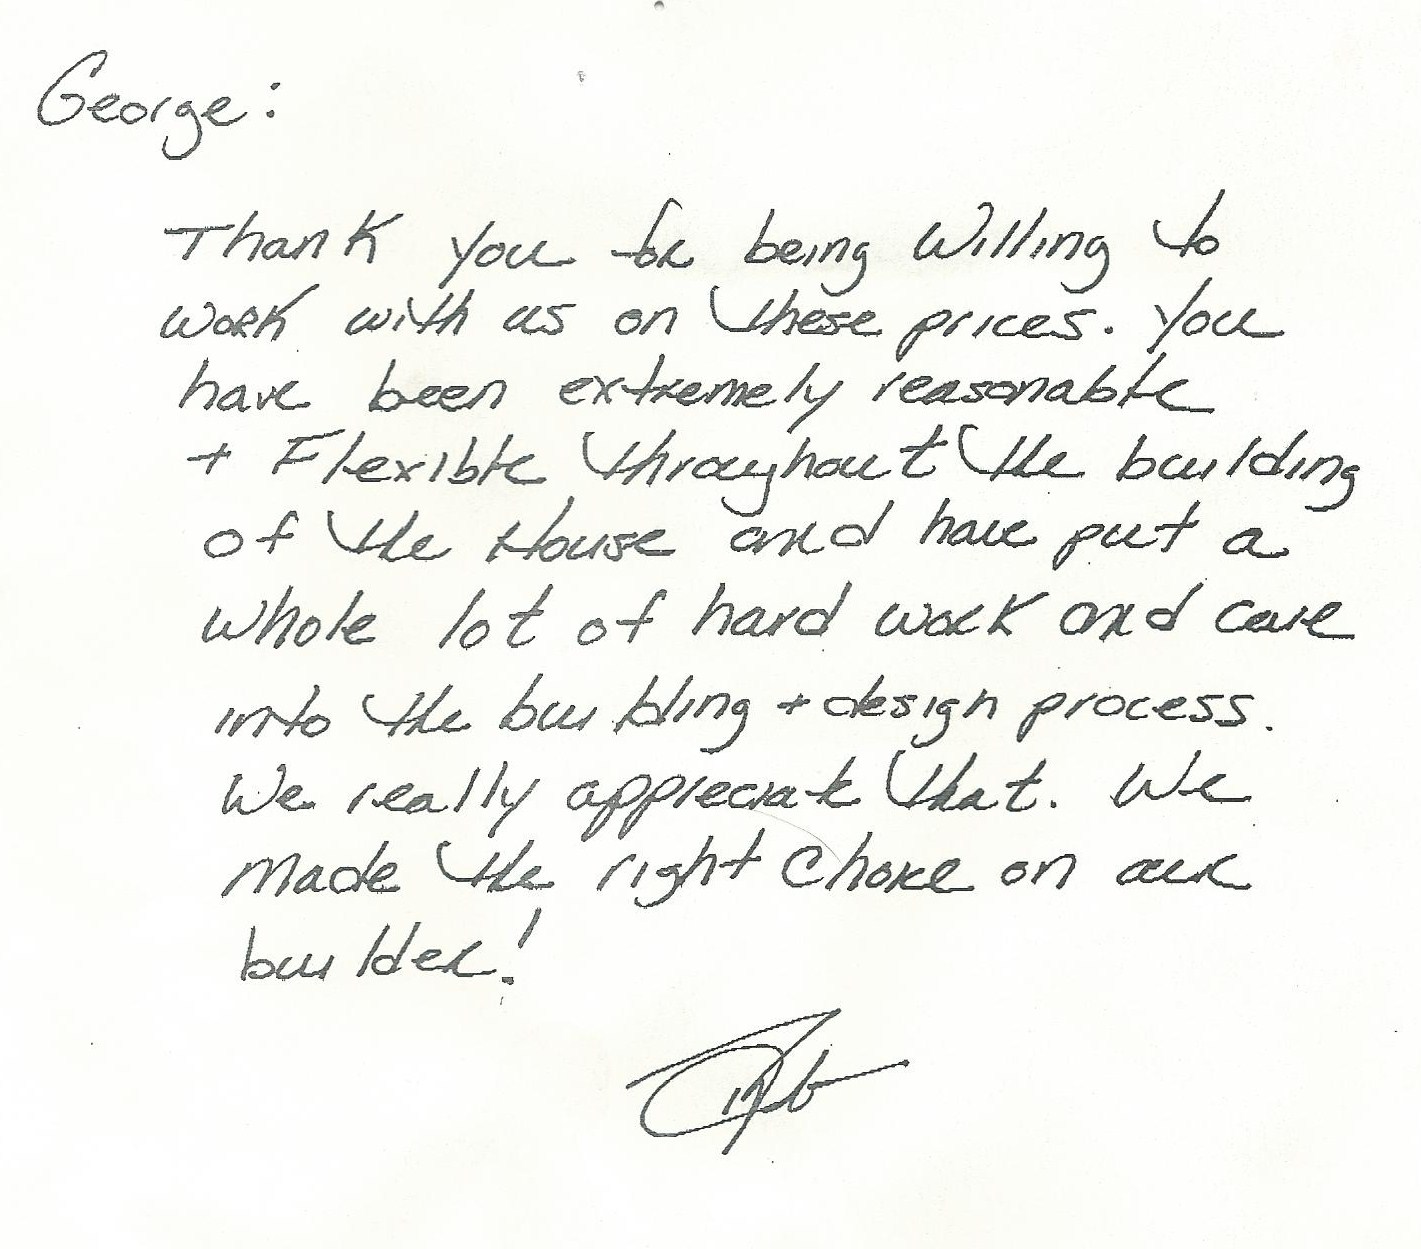 George:
Thank you for being Willing to
work with us on these prices. You
have been extremely reasonable
+ Flexible throughout the building
of the House and have put a
whole lot of hard work and care
into the building + design process.
We really appreciate that. We
made the right choice on our
builder!